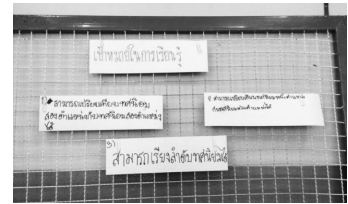 เป้าหมายในการเรียนรู้
1) สามารถเปรียบเทียบทศนิยมหนึ่งตำแหน่ง
กับทศนิยมหนึ่งตำแหน่งได้
2) สามารถเปรียบเทียบทศนิยม
สองตำแหน่งกับทศนิยมสองตำแหน่ง
ได้
3)
สามารถเรียงลำดับทศนิยมได้